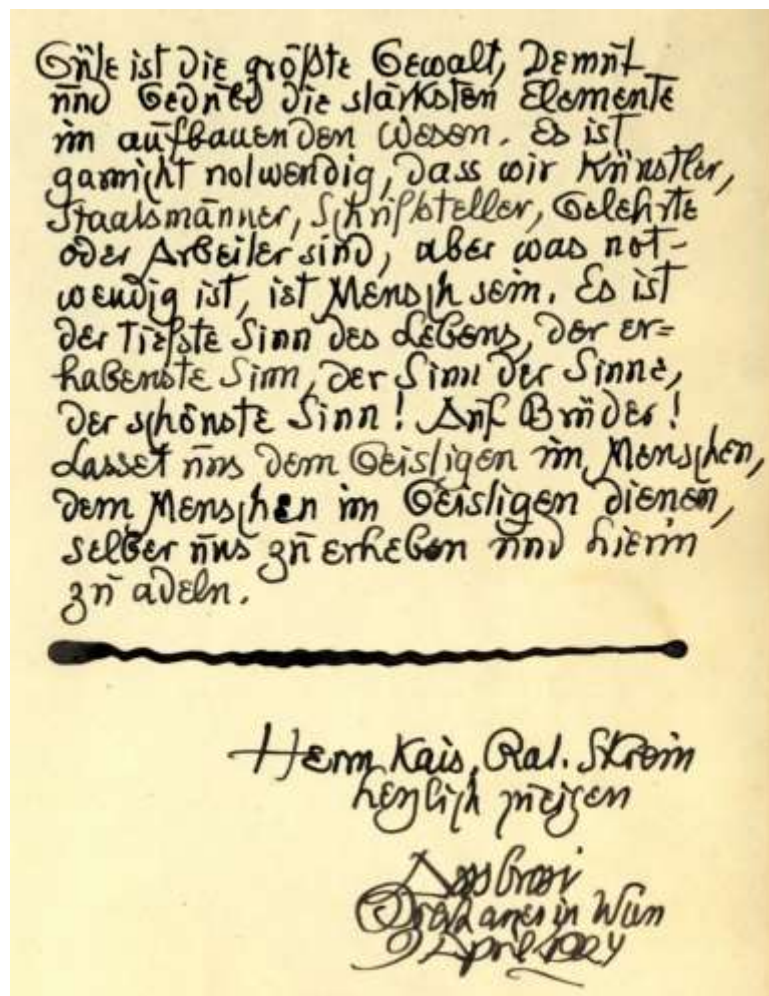 Güte ist die größte Gewalt, Demut
und Geduld die stärksten Elemente
im aufbauenden Wesen. Es ist
garnicht notwendig, dass wir Künstler,
Staatsmänner, Schriftsteller, Gelehrte
oder Arbeiter sind, aber was not-
wendig ist, ist Mensch sein. Es ist
der tiefste Sinn des Lebens, der er=
habenste Sinn, der Sinn der Sinne,
der schönste Sinn! Auf Brüder!
Lasset uns dem Geistigen im Menschen,
dem Menschen im Geistigen dienen,
selber uns zu erheben und hierin
zu adeln.
Herrn Kais. Rat.
herzlich
in Wien
April 1924